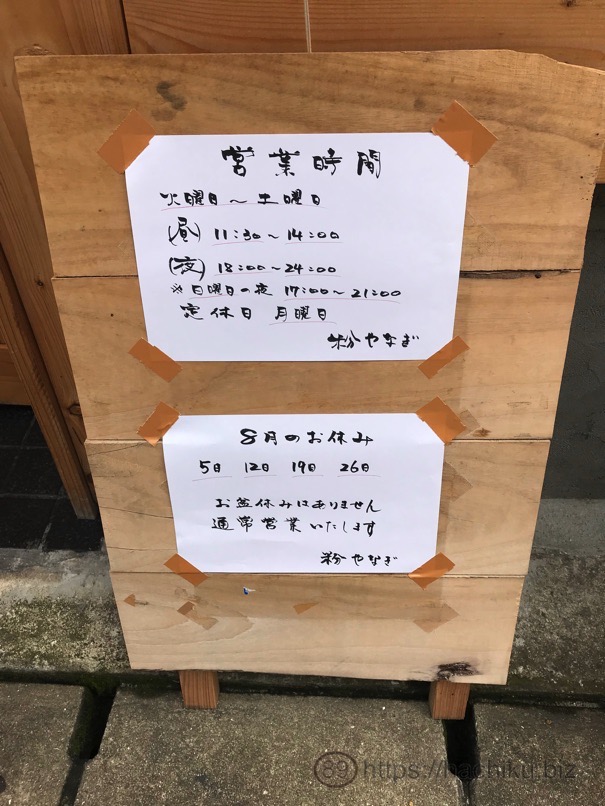 営業時間
火曜日〜土曜日
(昼) 11:30〜14:00
(夜) 18:00〜24:00
※日曜日の夜 17:00〜21:00
定休日 月曜日
粉やなぎ
8月のお休み
5日 12日 19日 26日
お盆休みはありません
通常営業いたします
粉やなぎ
89 https://hachiku.biz